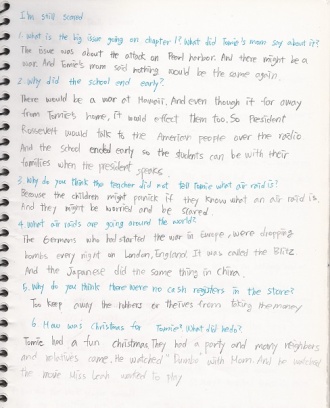 I'm still scared
1. What is the big issue going on chapter 1? What did Tomie's mom say about it?
The issue was about the attack on Pearl harbor. And there might be a
war. And Tomie's mom said nothing would be the same again.
2. Why did the school end early?
There would be a war at Hawaii. And even though it far away
from Tomie's home, it would effect them too. So President
Roosevelt would talk to the American people over the radio.
And the school ended early so the students can be with their
families when the president speaks.
3. Why do you think the teacher did not tell Tomie what air raid is?
Because the children might panick if they know what an air raid is.
And they might be worried and be scared.
4. What air raids are going around the world?
The Germans who had started the war in Europe, were dropping
bombs every night on London, England. It was called the Blitz.
And the Japanese did the same thing in China.
5. Why do you think there were no cash registers in the store?
To keep away the robbers or theives from taking the money
6. How was Christmas for Tomie? What did he do?
Tomie had a fun christmas. They had a party and many neighbors
and relatives came. He watched "Dumbo" with Mom. And he watched
the movie Miss Leah wanted to play